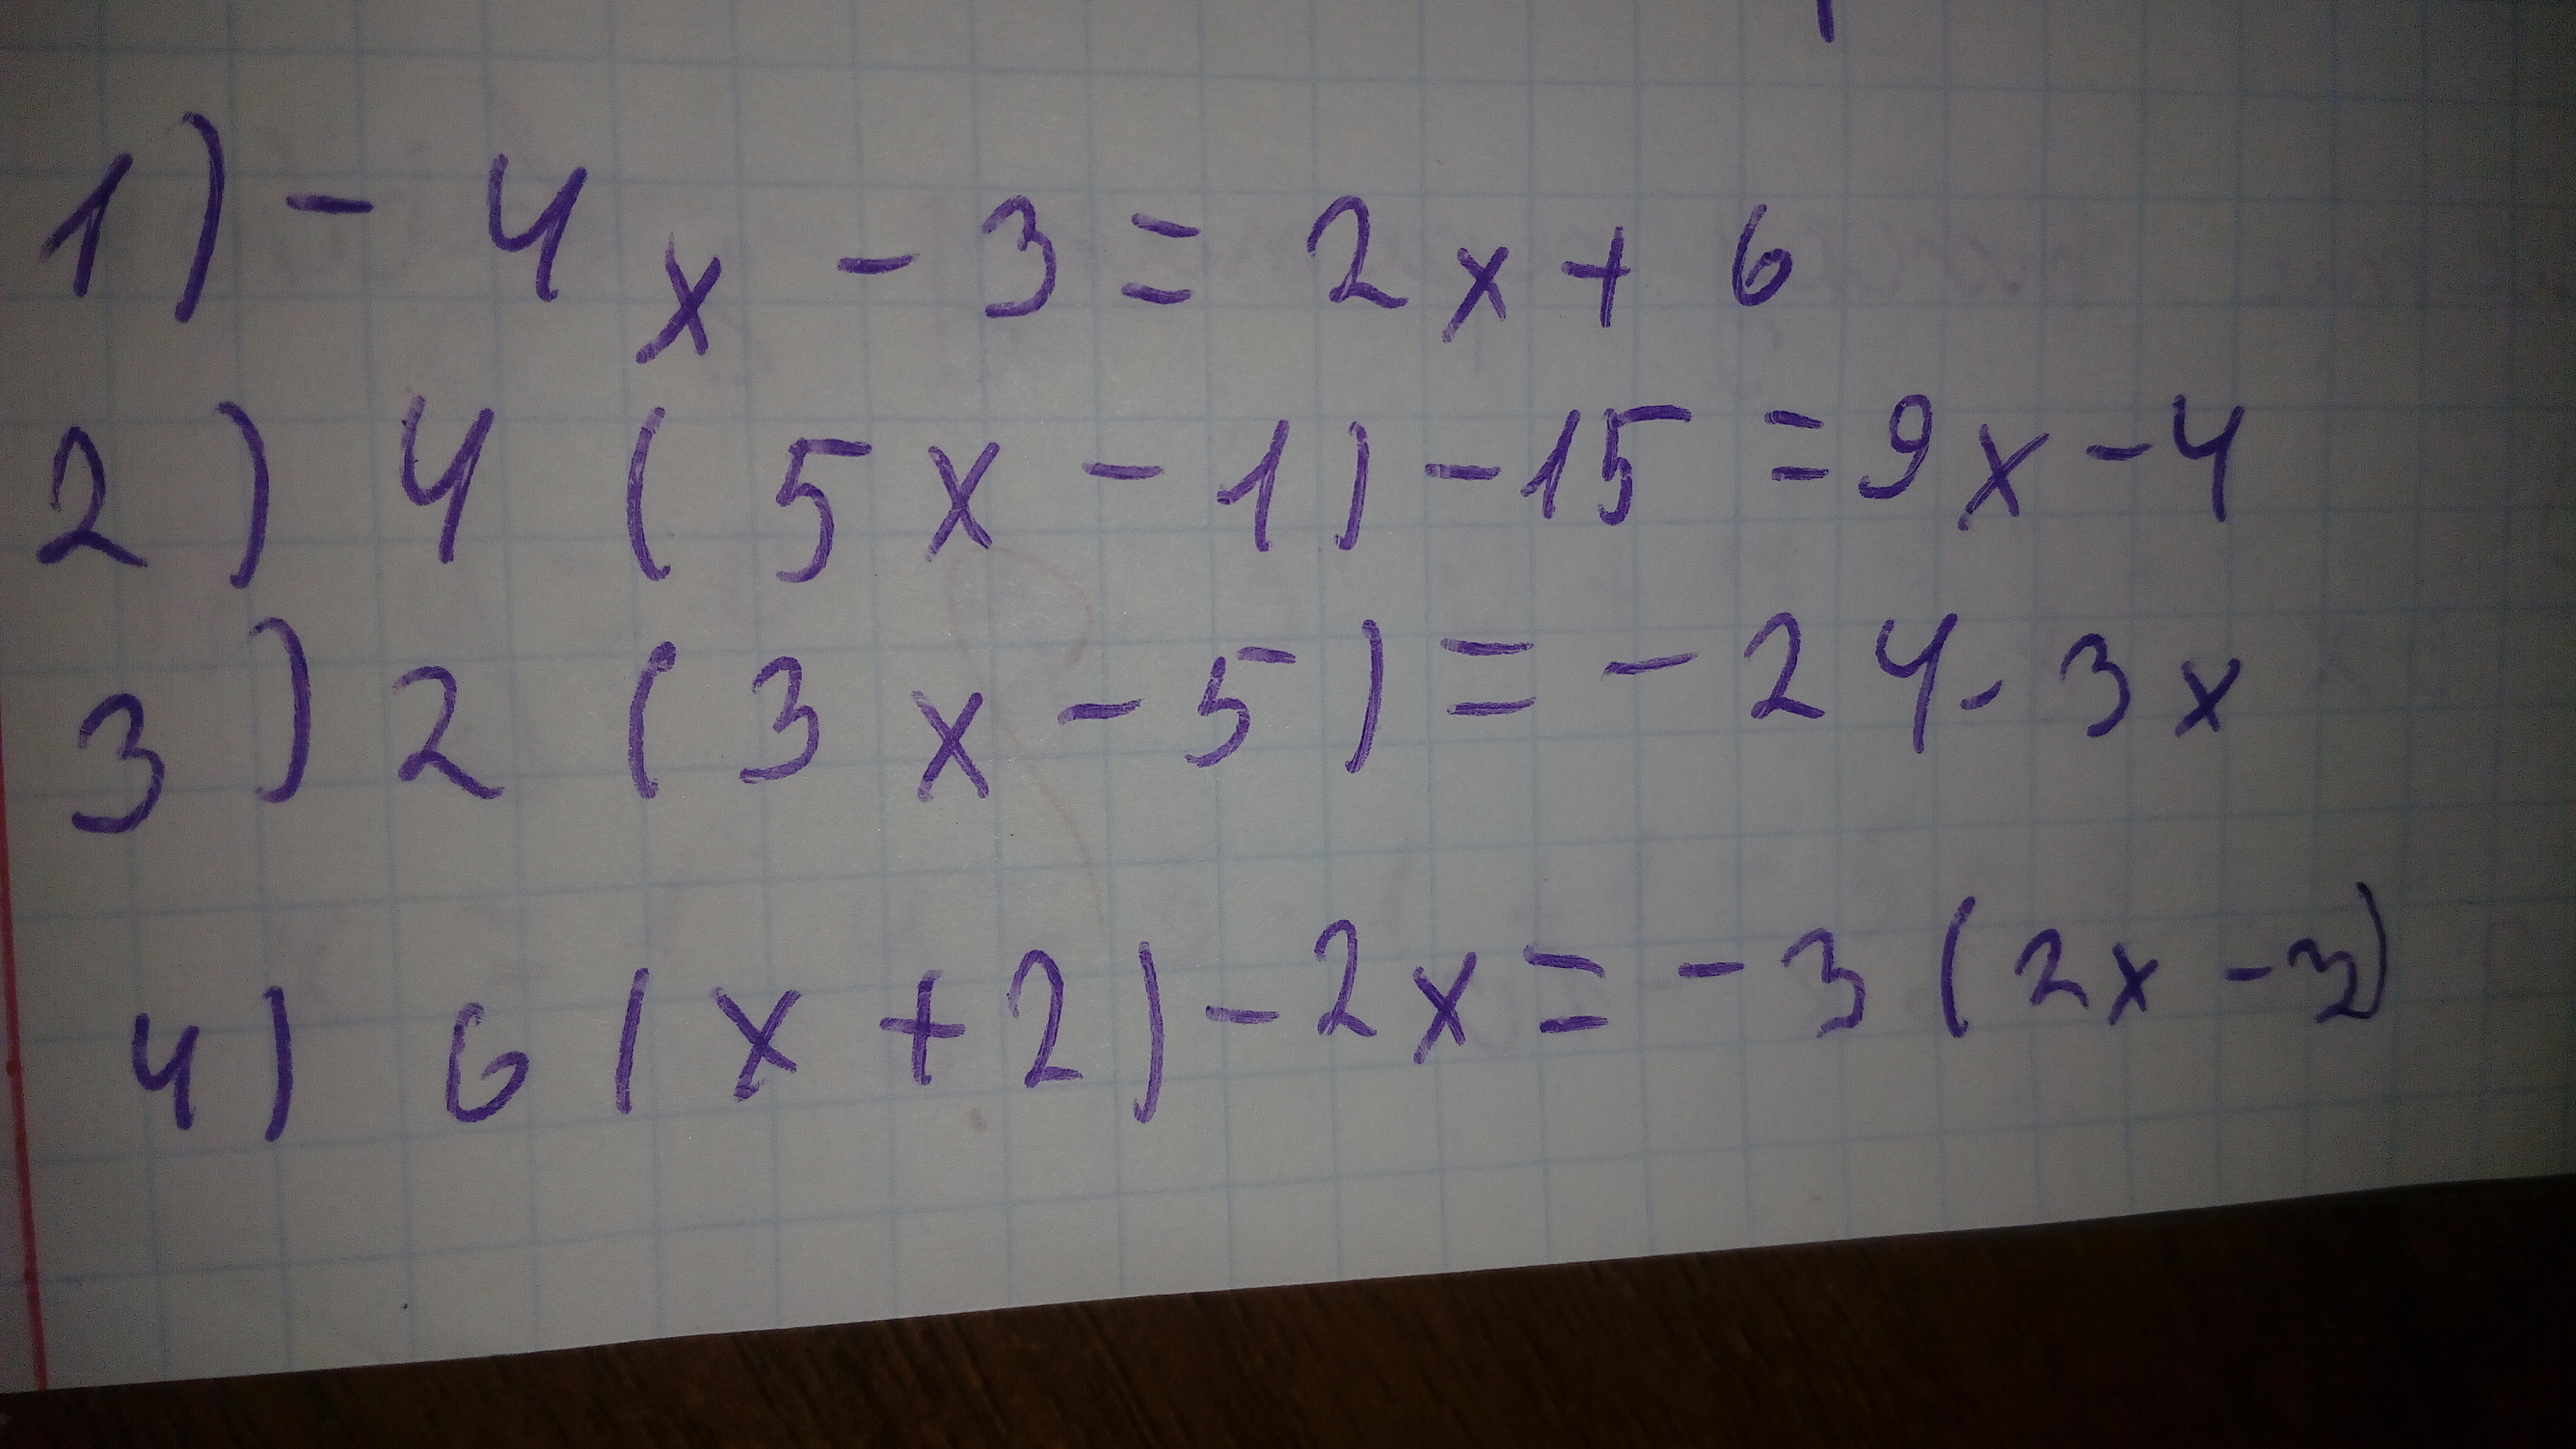 1) - 4x - 3 = 2x + 6
2) 4 (5x - 1) - 15 = 9x - 4
3) 2 (3x - 5) = - 24 - 3x
4) 6 (x + 2) - 2x = - 3 (2x - 3)